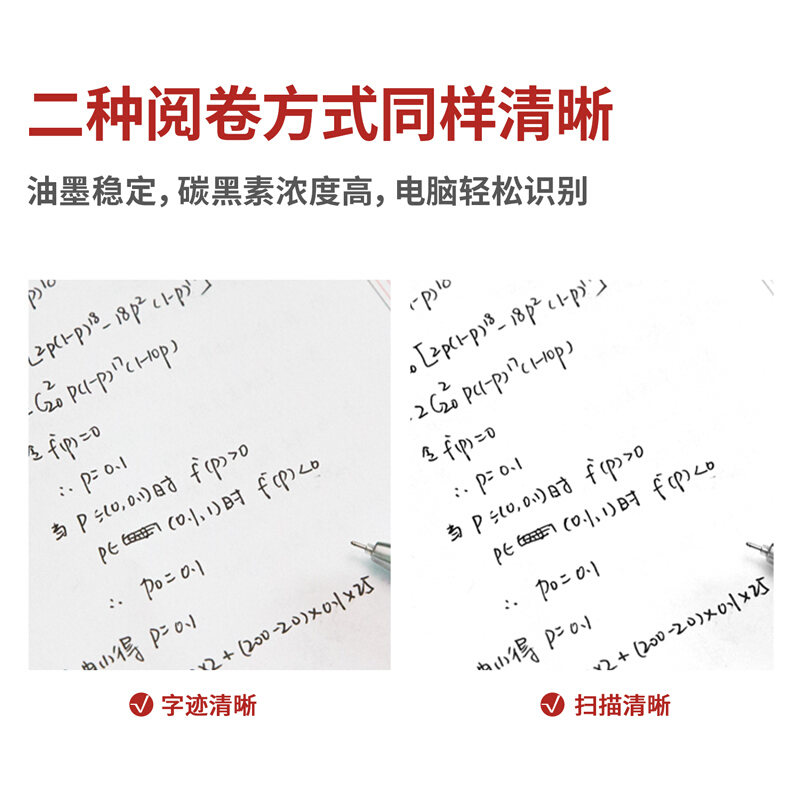 二种阅卷方式同样清晰
油墨稳定，碳黑素浓度高，电脑轻松识别
-p)¹⁰
[2p(1-p)¹⁸-18p²(1-p)¹⁷]
C²₂₀ p(1-p)¹⁷(1-10p)
令 f'(p)=0
∴ p=0.1
当 P∈(0,0.1)时 f'(p)>0
p∈(0.1,1)时 f'(p)<0
∴ p₀=0.1
由(1)得 p=0.1
×2+(200-20)×0.1×25
字迹清晰
(-p)¹⁰
[2p(1-p)¹⁸-18p²(1-p)¹⁷]
.2C²₂₀ p(1-p)¹⁷(1-10p)
令 f'(p)=0
∴ p=0.1
当 P∈(0,0.1)时 f'(p)>0
p∈(0.1,1)时 f'(p)<0
∴ p₀=0.1
由(1)得 p=0.1
×2+(200-20)×0.1×25
扫描清晰